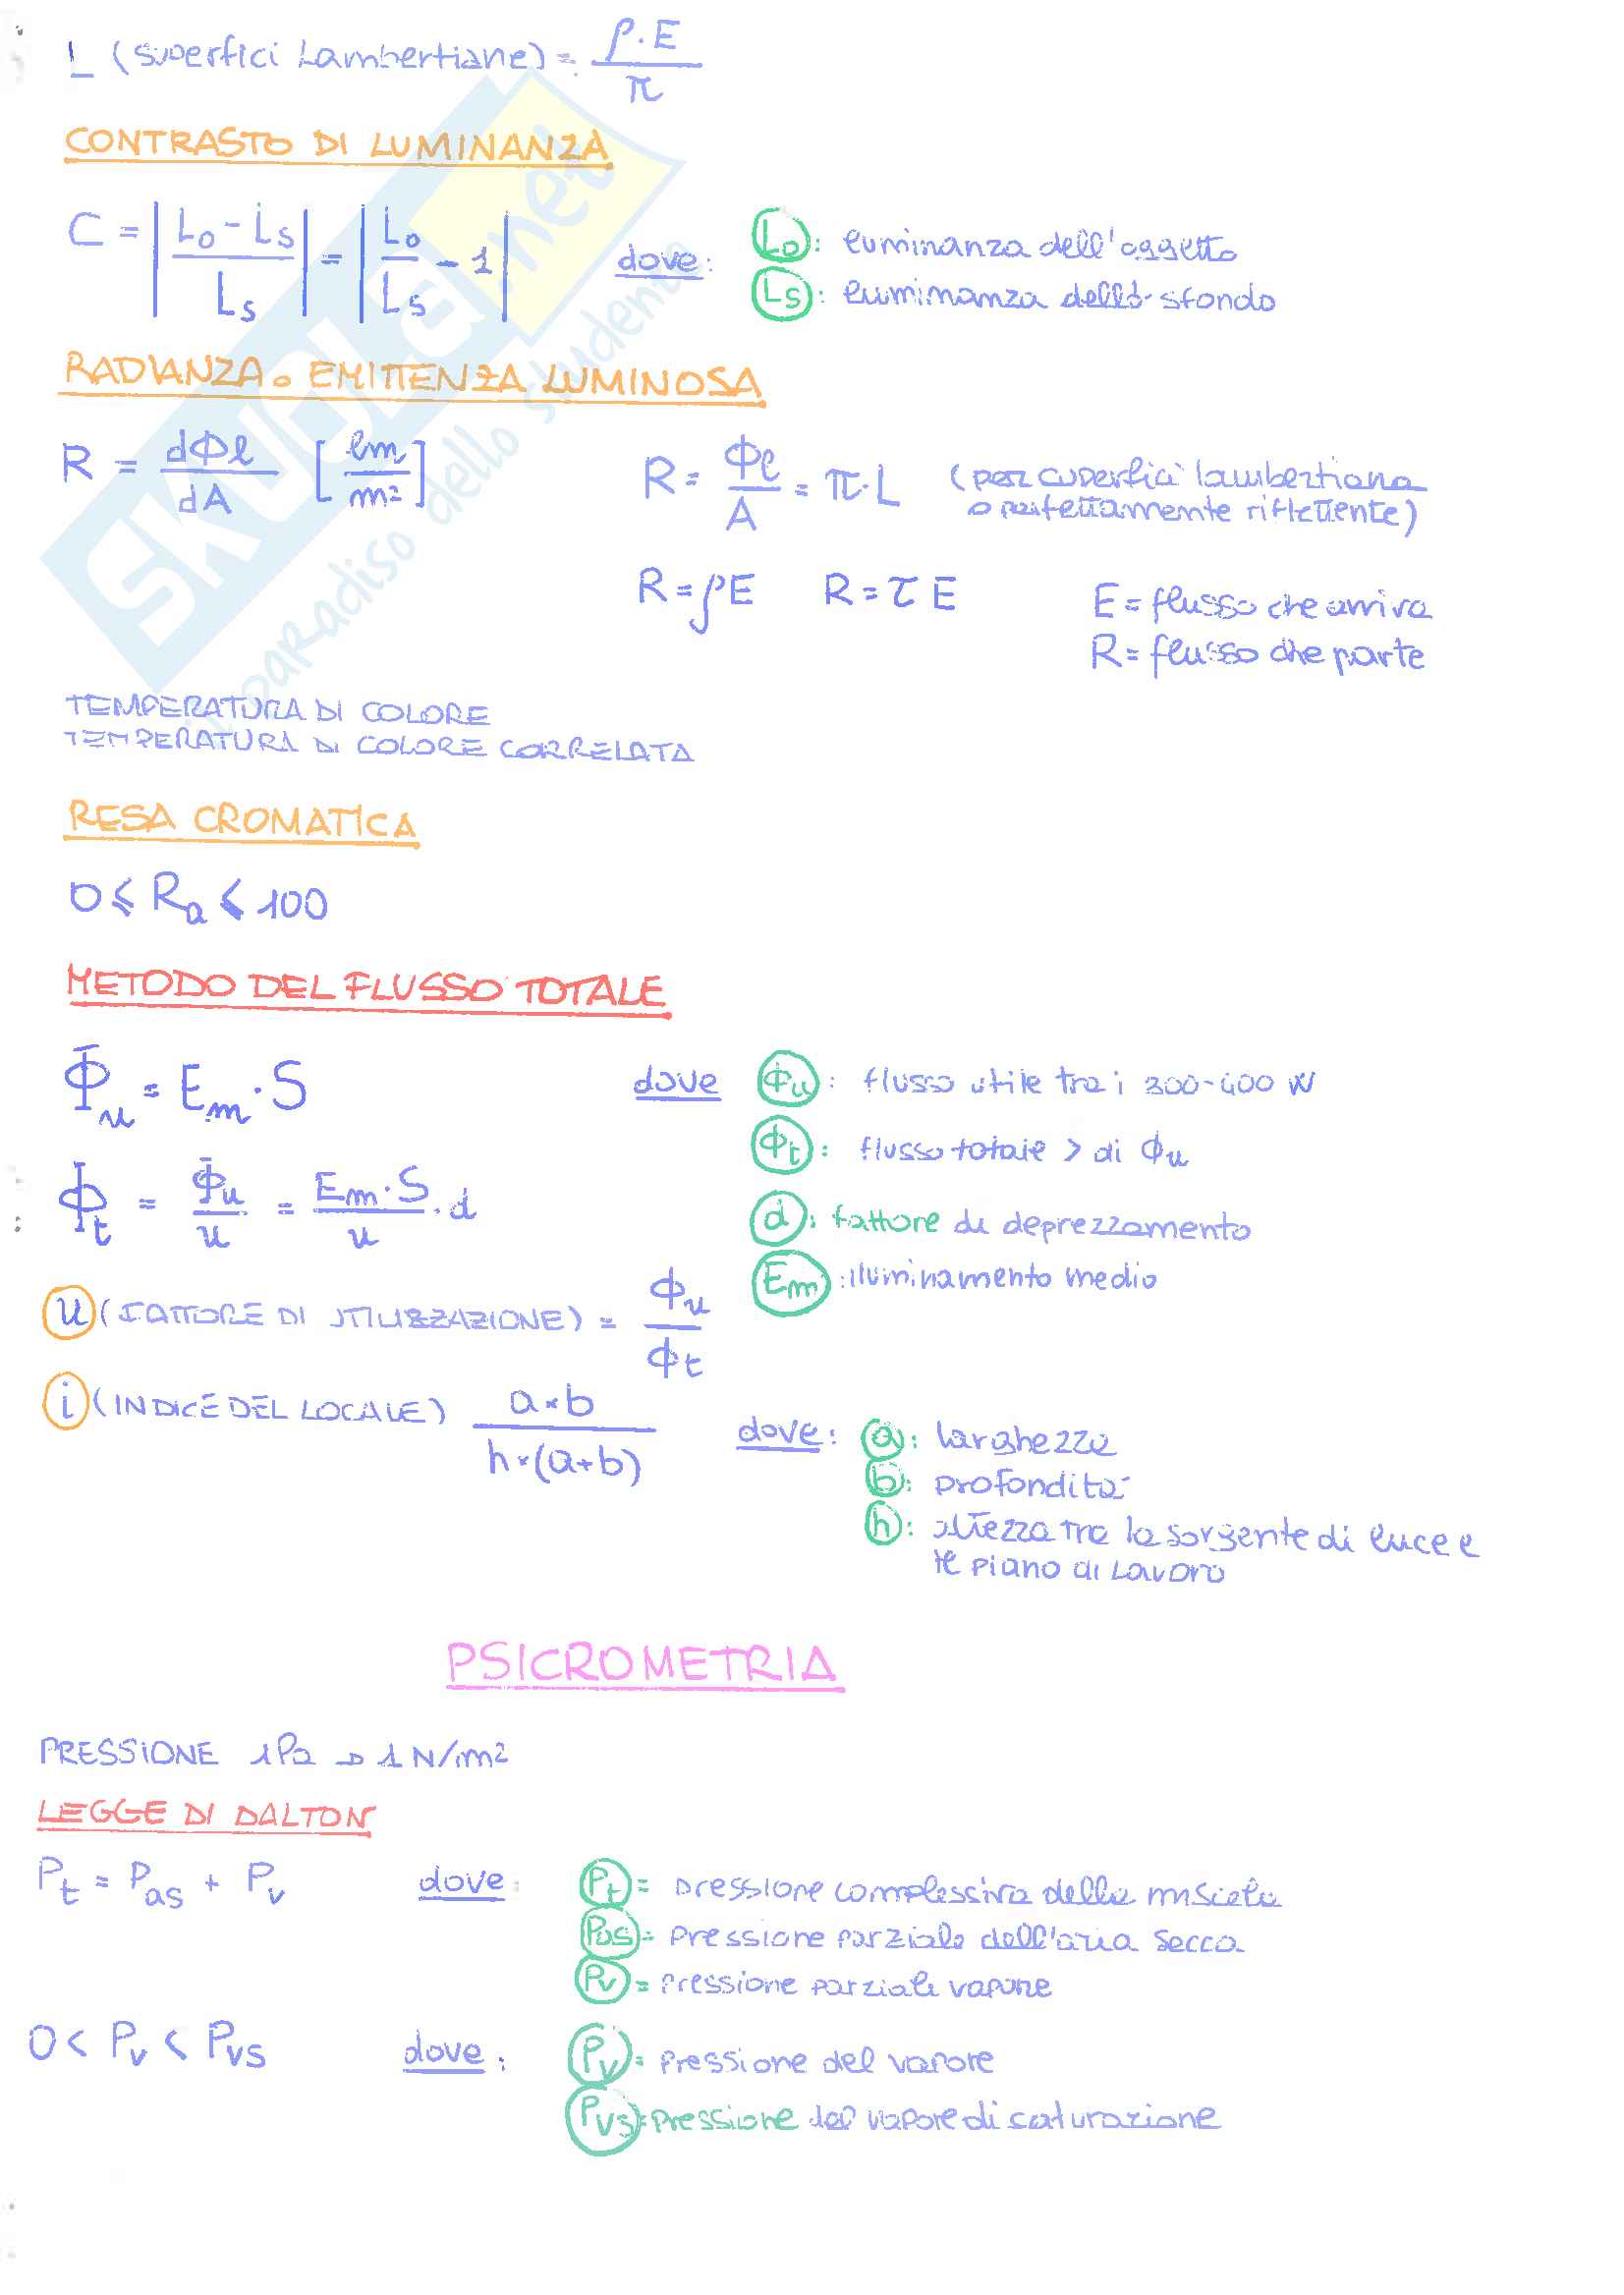 L (superfici Lambertiane) = ρ·E / π
CONTRASTO DI LUMINANZA
C = | (Lo - Ls) / Ls | = | Lo / Ls - 1 | dove: Lo: luminanza dell'oggetto
Ls: luminanza dello sfondo
RADIANZA o EMITTENZA LUMINOSA
R = dΦl / dA [lm / m²] R = Φl / A = π·L (per superfici lambertiana
o perfettamente riflettente)
R = ρE R = τE E = flusso che arriva
R = flusso che parte
TEMPERATURA DI COLORE
TEMPERATURA DI COLORE CORRELATA
RESA CROMATICA
0 ≤ Ra ≤ 100
METODO DEL FLUSSO TOTALE
Φu = Em · S dove Φu: flusso utile tra i 300-400 W
Φt: flusso totale > di Φu
Φt = Φu / u = Em · S / u · d d: fattore di deprezzamento
Em: illuminamento medio
u (FATTORE DI UTILIZZAZIONE) = Φu / Φt
i (INDICE DEL LOCALE) a×b / h×(a+b) dove: a: larghezza
b: profondità
h: altezza tra la sorgente di luce e
il piano di lavoro
PSICROMETRIA
PRESSIONE 1Pa → 1 N/m²
LEGGE DI DALTON
Pt = Pas + Pv dove: Pt = pressione complessiva della miscela
Pas = pressione parziale dell'aria secca
Pv = pressione parziale vapore
0 < Pv < Pvs dove: Pv = pressione del vapore
Pvs = pressione del vapore di saturazione
SKUOLA.net
il paradiso dello studente